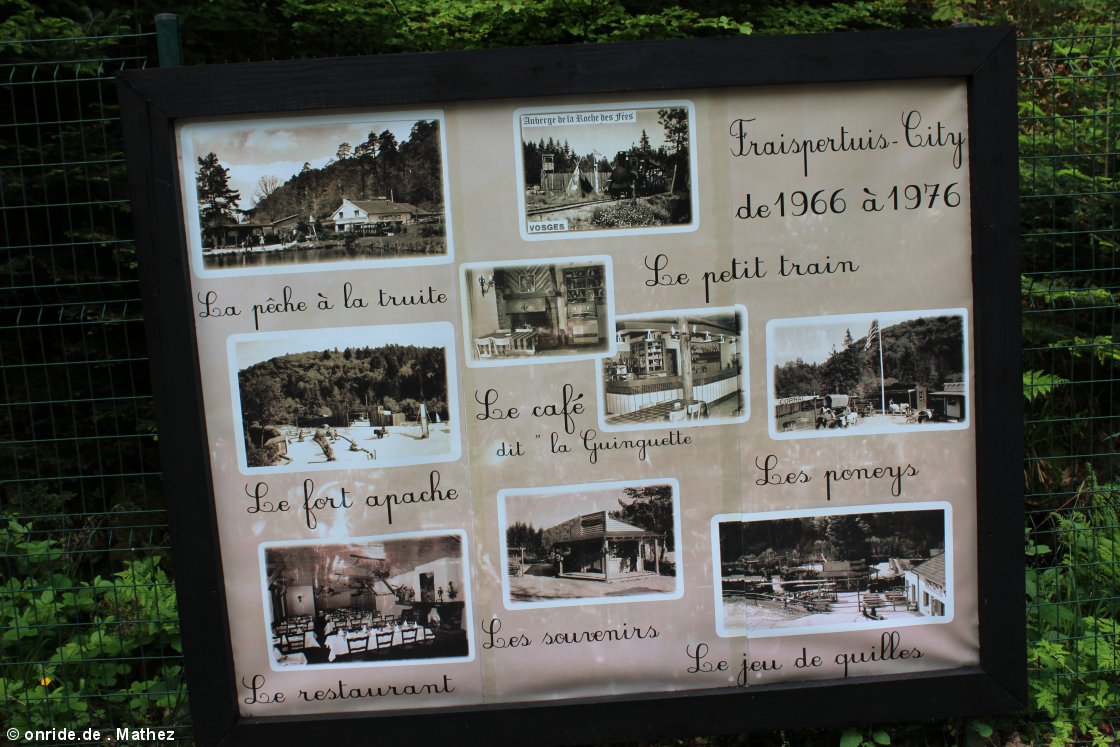 Auberge de la Roche des Fées
VOSGES
Fraispertuis-City
de 1966 à 1976
La pêche à la truite
Le petit train
Le café
dit " la Guinguette
Le fort apache
Les poneys
Le restaurant
Les souvenirs
Le jeu de quilles
© onride.de . Mathez